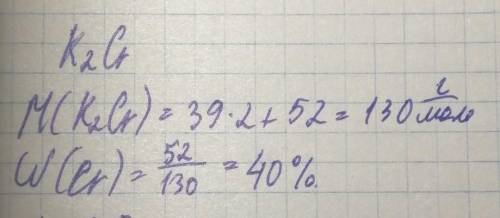 K₂Cr
M(K₂Cr) = 39·2 + 52 = 130 г/моль
W(Cr) = 52/130 = 40%